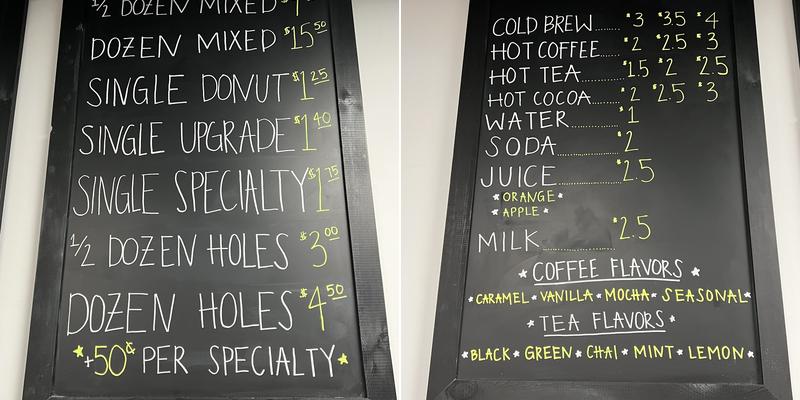 ½ DOZEN MIXED
DOZEN MIXED $15.50
SINGLE DONUT $1.25
SINGLE UPGRADE $1.40
SINGLE SPECIALTY $1.75
½ DOZEN HOLES $3.00
DOZEN HOLES $4.50
+50¢ PER SPECIALTY
COLD BREW...... $3 $3.5 $4
HOT COFFEE..... $2 $2.5 $3
HOT TEA........ $1.5 $2 $2.5
HOT COCOA..... $2 $2.5 $3
WATER.......... $1
SODA........... $2
JUICE.......... $2.5
* ORANGE *
* APPLE *
MILK........... $2.5
* COFFEE FLAVORS *
* CARAMEL * VANILLA * MOCHA * SEASONAL *
* TEA FLAVORS *
* BLACK * GREEN * CHAI * MINT * LEMON *